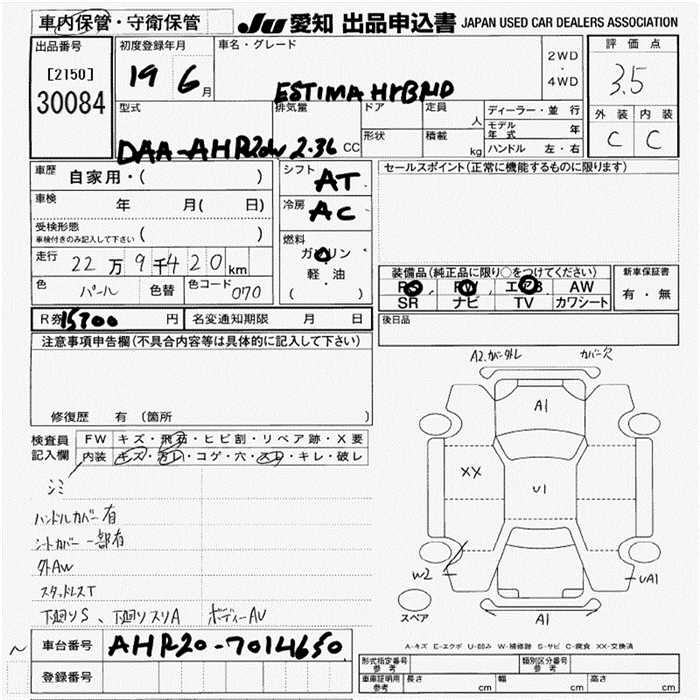 車内保管・守衛保管
JU 愛知 出品申込書 JAPAN USED CAR DEALERS ASSOCIATION
出品番号
[2150]
30084
初度登録年月
19 6月
車名・グレード
ESTIMA HYBRID
2WD
・
4WD
評価点
3.5
外装 内装
C C
型式
DAA-AHR20W
排気量
2.36 CC
ドア
形状
定員 人
積載 kg
ディーラー・並行
モデル年式 年
ハンドル 左・右
車歴 自家用・( )
車検 年 月( 日)
受検形態
車検付きのみ記入して下さい ( )
走行 22万9千420km
色 パール 色替 色コード 070
シフト AT
冷房 AC
燃料
ガソリン
・
軽油
( )
セールスポイント(正常に機能するものに限ります)
装備品(純正品に限り○をつけてください)
PS PW エアB AW
SR ナビ TV カワシート
新車保証書
有・無
R券 15700円 名変通知期限 月 日
後日品
注意事項申告欄(不具合内容等は具体的に記入して下さい)
修復歴 有(箇所
検査員記入欄
FW キズ・飛石・ヒビ割・リペア跡・X要
内装 キズ・ヨゴレ・コゲ・穴・スレ・キレ・破レ
シミ
ハンドルカバー有
シートカバー一部有
外AW
スタッドレスT
下廻りS、下廻りスリA ボディーAU
A2.カバー外レ カバー欠
A1
XX
U1
W2
UA1
A1
スペア
A-キズ E-エクボ U-凹み W-補修跡 S-サビ C-腐食 XX-交換済
~ 車台番号 AHR20-7014650
登録番号
形式指定番号参考
類別区分番号参考
車庫証明用参考 長さ cm 幅 cm 高さ cm